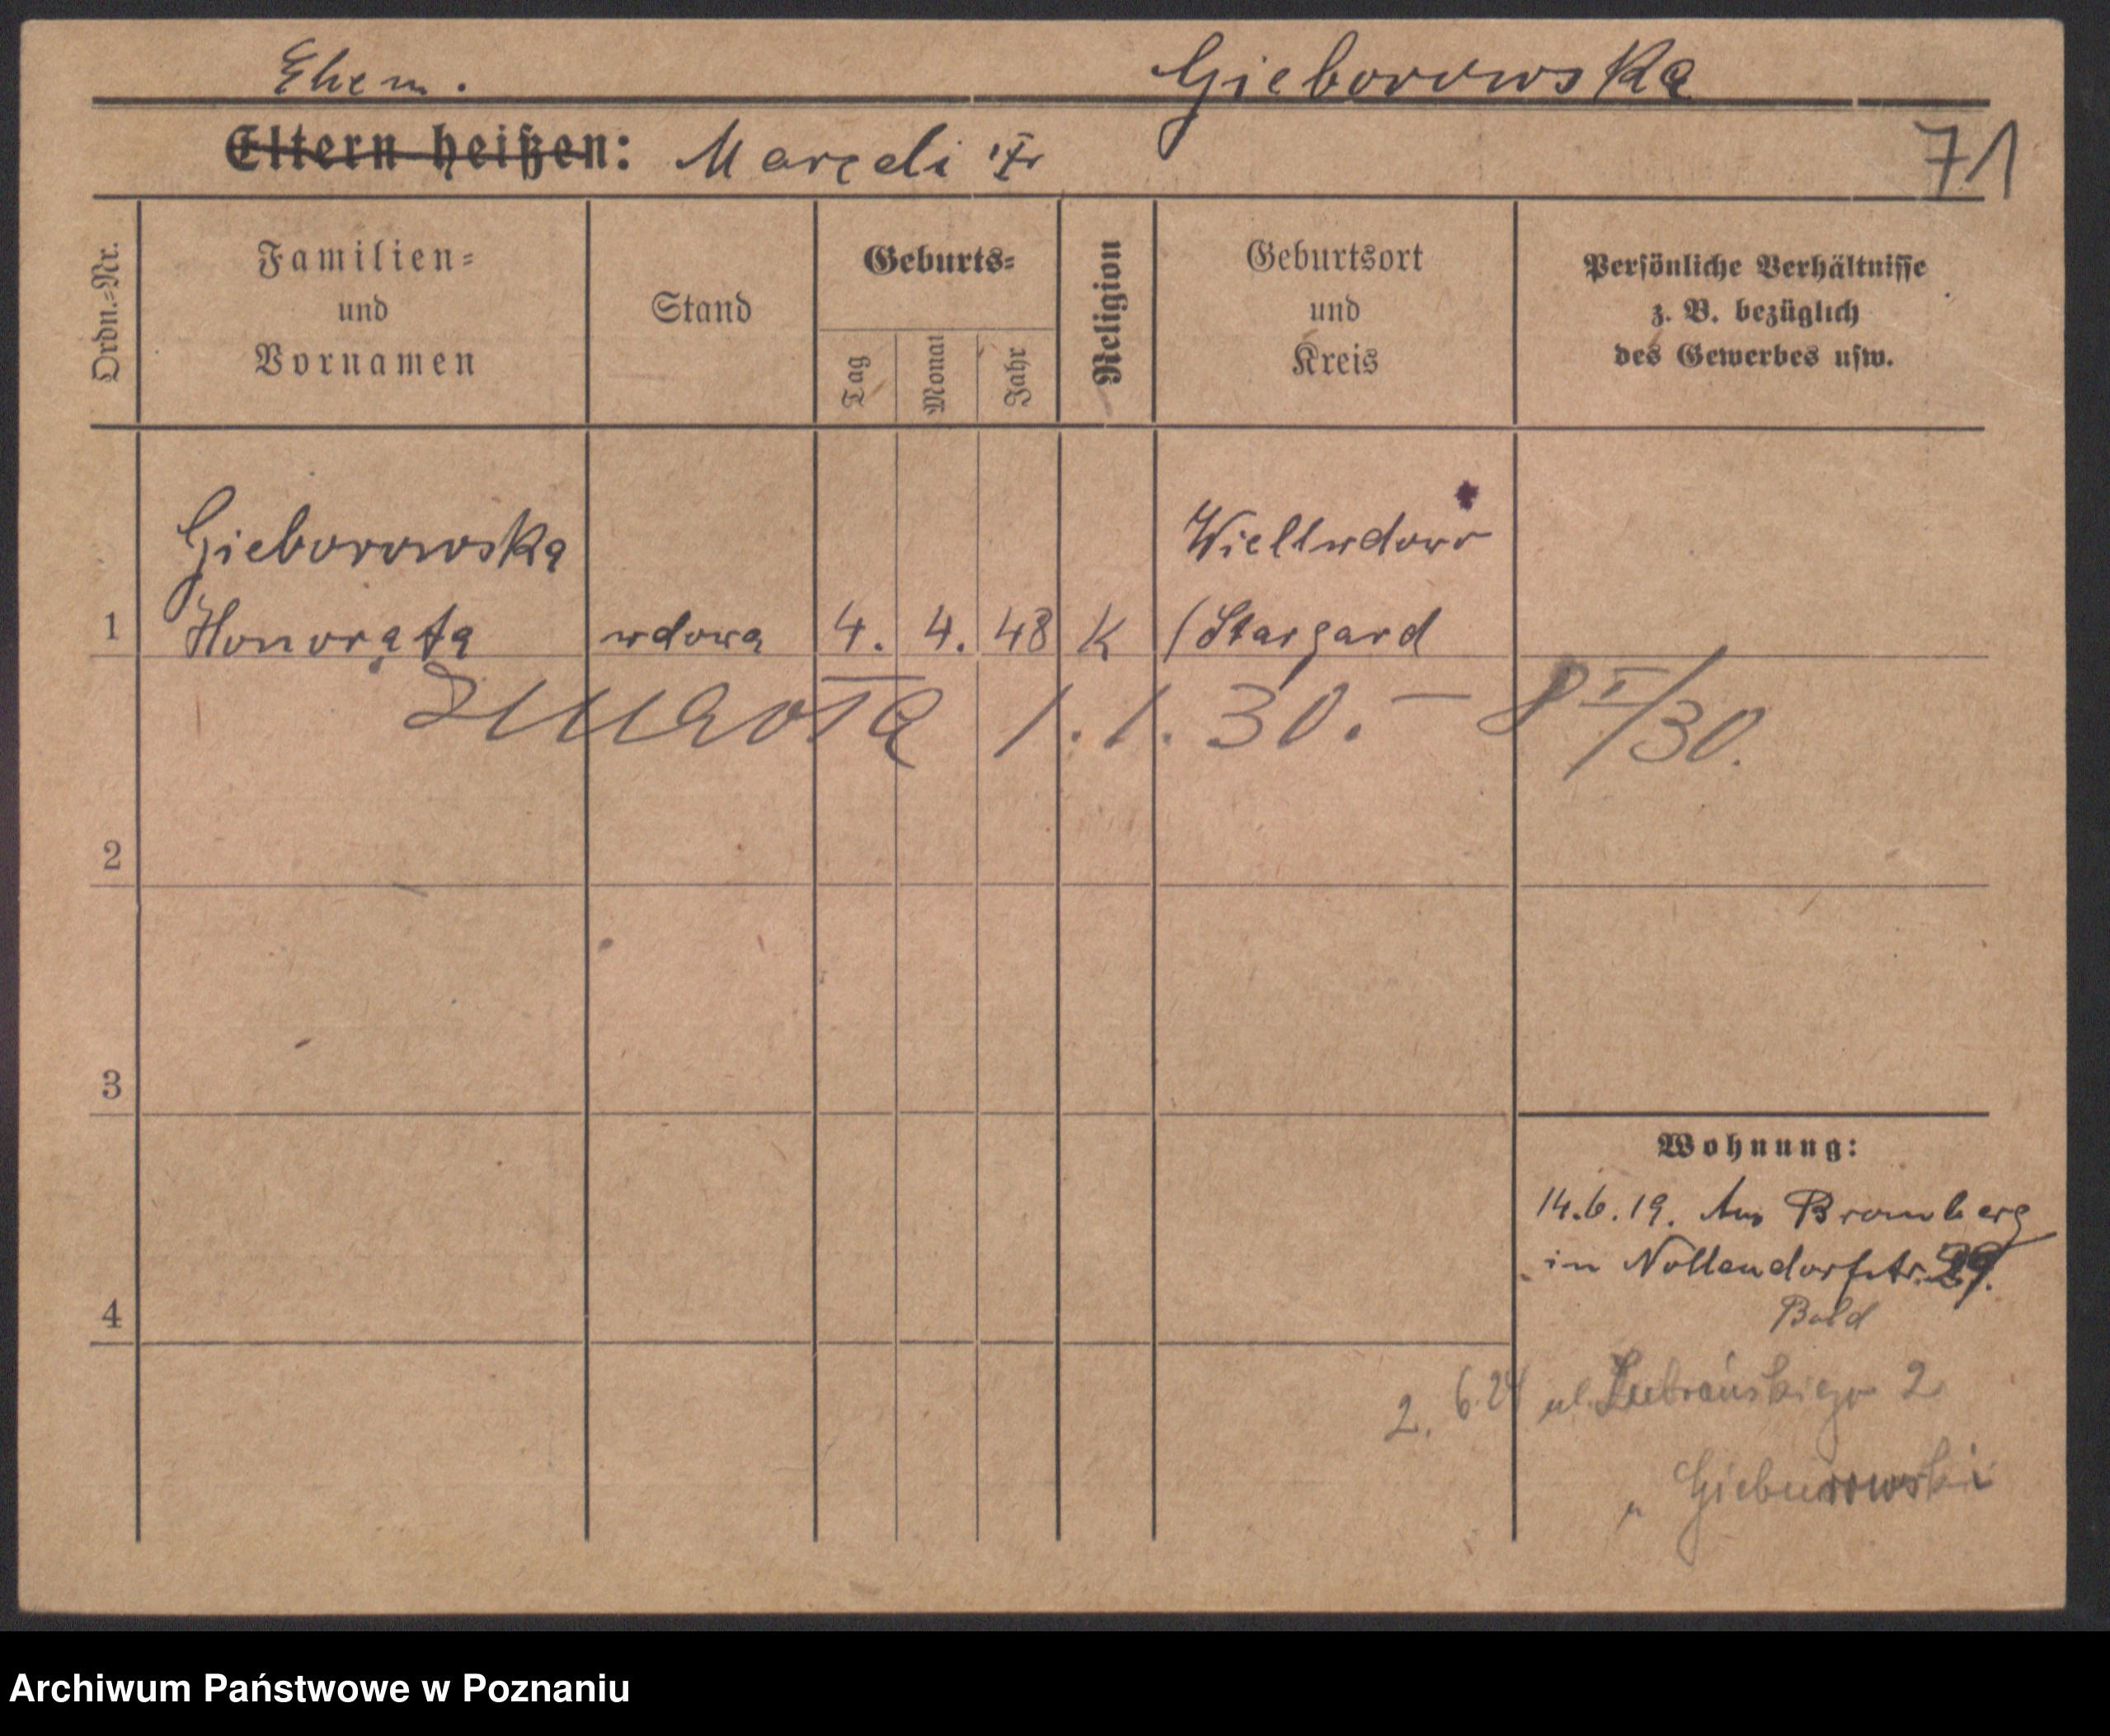 Ehem. Gieborowska
Eltern heißen: Marceli 71
Ordn.=Nr.
Familien=
und
Vornamen
Stand
Geburts=
Tag
Monat
Jahr
Religion
Geburtsort
und
Kreis
Persönliche Verhältnisse
z. B. bezüglich
des Gewerbes usw.
Gieborowska
1 Honorata wdowa 4. 4. 48 K /Stargard
zmarła 1.1.30. — 8 I/30.
2
3
4
Wohnung:
14.6.19. Aus Bromberg
in Nollendorfstr. 29.
2. 6.24 ul. Lubrańskiego 2
Gieburowski
Archiwum Państwowe w Poznaniu